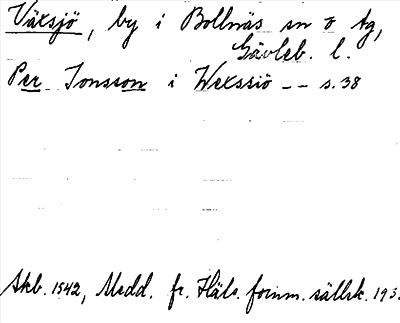 Växsjö, by i Bollnäs sn o tg,
Gävleb. l.
Per Jonsson i Wexssiö -- s. 38
Skb. 1542, Medd. fr. Häls. fornm. sällsk. 193.